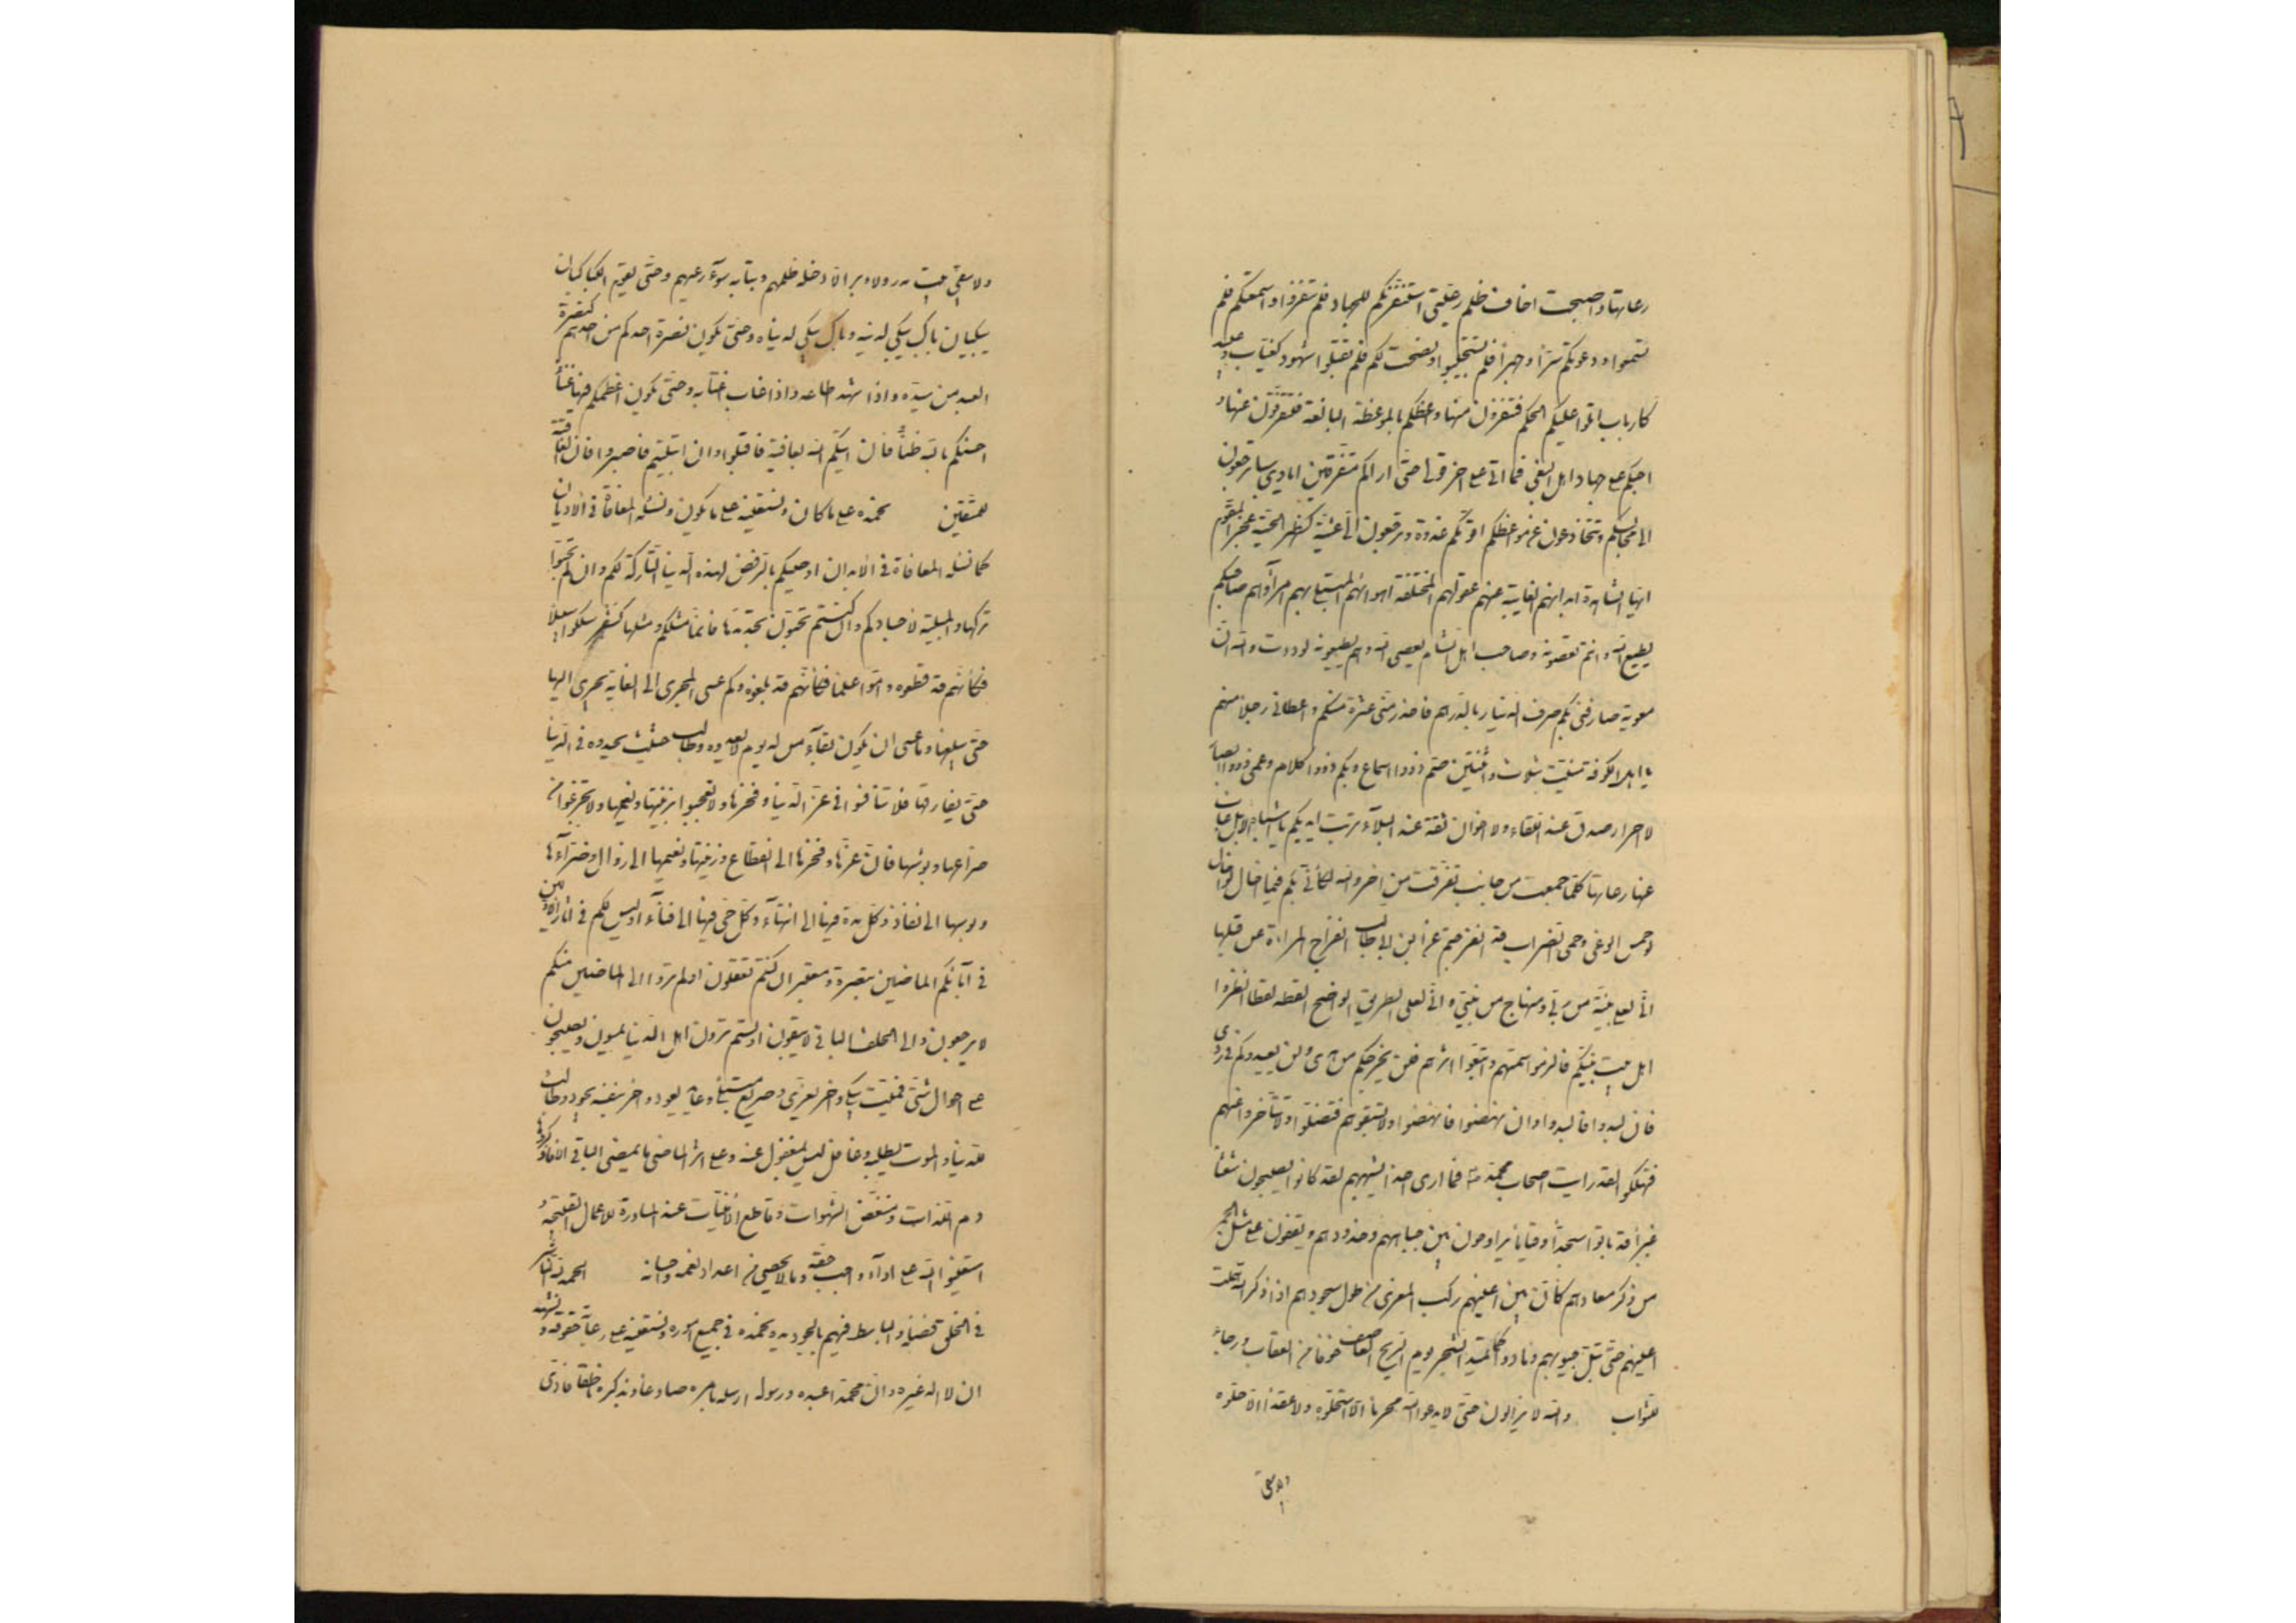 رعاتها واصبحت اخاف ظلم رعيتى استنفرتكم للجهاد فلم تنفروا واسمعتكم فلم
تسمعوا ودعوتكم سرّا وجهرا فلم تستجيبوا ونصحت لكم فلم تقبلوا شهود كغياب وعبيد
كارباب اتلوا عليكم الحكم فتنفرون منها واعظكم بالموعظة البالغة فتتفرقون عنها و
احثكم على جهاد اهل البغى فما اتى على اخر قولى حتى اراكم متفرقين ايادى سبا ترجعون
الى مجالسكم وتتخادعون عن مواعظكم اقوّمكم غدوة وترجعون الىّ عشيّة كظهر الحيّة عجز المقوّم
ايها الشاهدة ابدانهم الغايبة عنهم عقولهم المختلفة اهوائهم المبتلى بهم امراؤهم صاحبكم
يطيع الله وانتم تعصونه وصاحب اهل الشام يعصى الله وهم يطيعونه لوددت والله انّ
معوية صارفنى بكم صرف الدينار بالدرهم فاخذ منّى عشرة منكم واعطانى رجلا منهم
يا اهل الكوفة منيت بثلاث واثنتين صمّ ذووا اسماع وبكم ذووا كلام وعمى ذووا ابصار
لا احرار صدق عند اللقاء ولا اخوان ثقة عند البلاء تربت ايديكم يا اشباه الابل غاب
عنها رعاتها كلّما جمعت من جانب تفرقت من اخر والله لكأنّى بكم فيما اخال لو
حمس الوغى وحمى الضراب قد انفرجتم عن ابن ابى طالب انفراج المراة عن قبلها
انّى لعلى بيّنة من ربّى ومنهاج من نبيّى وانّى لعلى الطريق الواضح القطه لقطا انظروا
اهل بيت نبيّكم فالزموا سمتهم واتبعوا اثرهم فلن يخرجوكم من هدى ولن يعيدوكم فى ردى
فان لبدوا فالبدوا وان نهضوا فانهضوا ولا تسبقوهم فتضلوا ولا تتأخروا عنهم
فتهلكوا لقد رايت اصحاب محمد فما ارى احدا يشبههم لقد كانوا يصبحون شعثا
غبرا قد باتوا سجّدا وقياما يراوحون بين جباههم وخدودهم ويقفون على مثل الجمر
من ذكر معادهم كانّ بين اعينهم ركب المعزى من طول سجودهم اذا ذكر الله هملت
اعينهم حتى تبلّ جيوبهم ومادوا كما يميد الشجر يوم الريح العاصف خوفا من العقاب ورجاء
للثواب والله لا يزالون حتى لا يدعوا لله محرما الّا استحلّوه ولا عقدا الّا حلّوه
ولا يبقى
ولا يبقى بيت مدر ولا وبر الّا دخله ظلمهم ونبا به سوء رعيهم وحتّى يقوم الباكيان
يبكيان باك يبكى لدينه وباك يبكى لدنياه وحتى تكون نصرة احدكم من احدهم كنصرة
العبد من سيّده اذا شهد اطاعه واذا غاب اغتابه وحتى يكون اعظمكم فيها غناء
احسنكم بالله ظنّا فان اتيكم الله بعافية فاقبلوا وان ابتليتم فاصبروا فان العاقبة
للمتقين نحمده على ما كان ونستعينه على ما يكون ونسئله المعافاة فى الاديان
كما نسئله المعافاة فى الابدان اوصيكم بالرفض لهذه الدنيا التاركة لكم وان لم تحبّوا
تركها والمبلية لاجسادكم وان كنتم تحبّون تجديدها فانما مثلكم ومثلها كسفر سلكوا سبيلا
فكأنّهم قد قطعوه وامّوا علما فكأنّهم قد بلغوه وكم عسى المجرى الى الغاية يجرى اليها
حتى يبلغها وما عسى ان يكون بقاء من له يوم لا يعدوه وطالب حثيث يحدوه فى الدنيا
حتى يفارقها فلا تنافسوا فى عزّ الدنيا وفخرها ولا تعجبوا بزينتها ونعيمها ولا تجزعوا من
ضرّائها وبؤسها فانّ عزّها وفخرها الى انقطاع وزينتها ونعيمها الى زوال وضرّاءها
وبؤسها الى نفاد وكلّ مدة فيها الى انتهاء وكلّ حىّ فيها الى فناء اوليس لكم فى اثار الاولين
فى آبائكم الماضين تبصرة ومعتبر ان كنتم تعقلون اولم تروا الى الماضين منكم
لا يرجعون والى الخلف الباقى لا يبقون اولستم ترون اهل الدنيا يمسون ويصبحون
على احوال شتّى فميّت يبكى واخر يعزّى وصريع مبتلى وعايد يعود واخر بنفسه يجود وطالب
للدنيا والموت يطلبه وغافل ليس بمغفول عنه وعلى اثر الماضى ما يمضى الباقى الا فاذكروا
هادم اللذات ومنغّص الشهوات وقاطع الامنيات عند المساورة للاعمال القبيحة و
استعينوا الله على اداء واجب حقّه وما لا يحصى من اعداد نعمه واحسانه الحمد لله الناشر
فى الخلق فضله والباسط فيهم بالجود يده نحمده فى جميع اموره ونستعينه على رعاية حقوقه ونشهد
ان لا اله غيره وان محمدا عبده ورسوله ارسله بامره صادعا وبذكره ناطقا فادّى